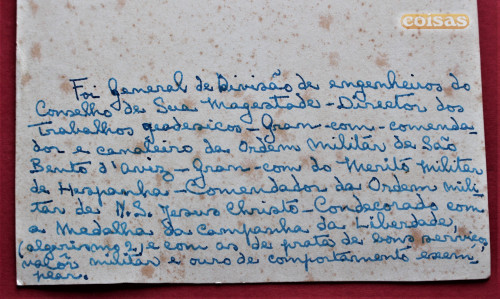 coisas
Foi General de Divisão de engenheiros do
Conselho de Sua Magestade - Director dos
trabalhos geodesicos - Gran-com-comenda-
dor e cavaleiro da Ordem militar de São
Bento d'aviz - Gran com do Merito Militar
de Hespanha - Comendador da Ordem mili-
tar de N.S. Jesus Christo - Condecorado com
a Medalha da Campanha da Liberdade
(algorismo 9) e com as de prata de bons serviços
valôr militar e ouro de comportamento exem
plar.